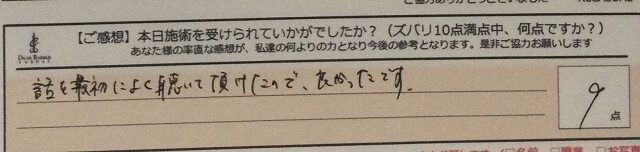 【ご感想】本日施術を受けられていかがでしたか？（ズバリ10点満点中、何点ですか？）
あなた様の率直な感想が、私達の何よりの力となり今後の参考となります。是非ご協力お願いします
話を最初によく聴いて頂けたので、良かったです。
9
点